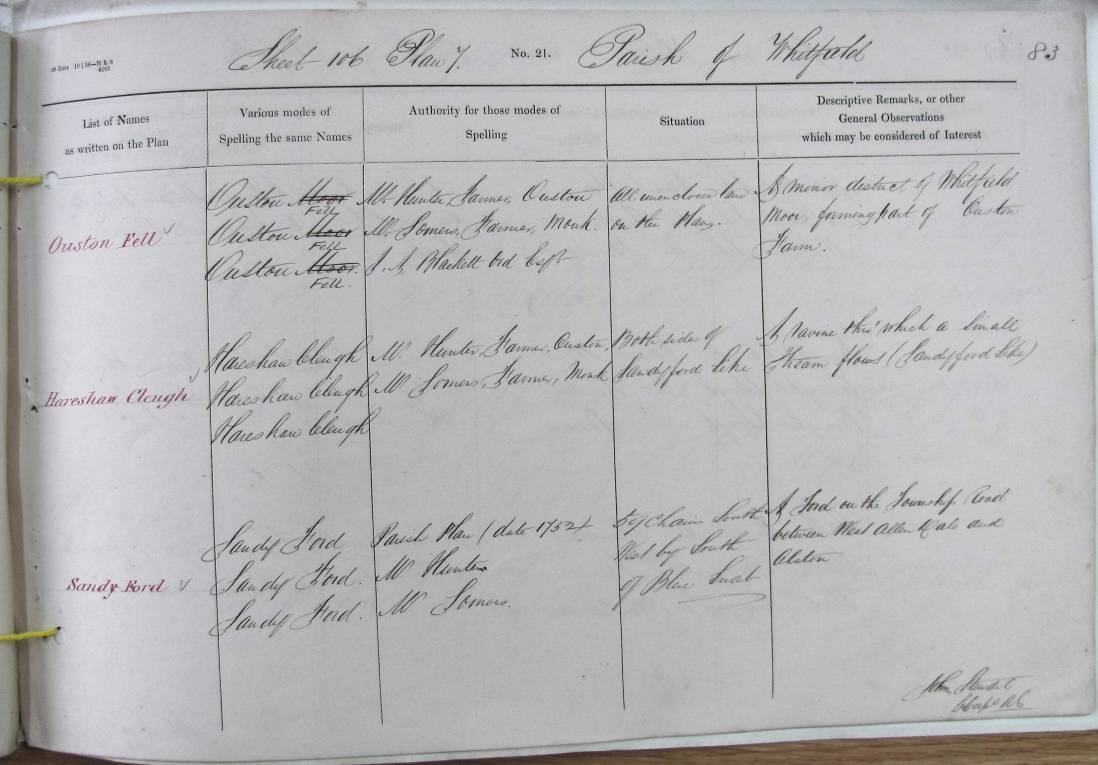 Sheet 106 Plan 7. No. 21. Parish of Whitfield 83
List of Names
as written on the Plan
Various modes of
Spelling the same Names
Authority for those modes of
Spelling
Situation
Descriptive Remarks, or other
General Observations
which may be considered of Interest
Ouston Fell
Ouston Moor
Fell
Ouston Moor
Fell
Ouston Moor.
Fell.
Mr Hunter, Farmer, Ouston
Mr Somers, Farmer, Monk.
J. A Blackett Ord Esqr
All unenclosed
on the Plan.
A minor district of Whitfield
Moor, forming part of Ouston
Farm.
Hareshaw Cleugh
Hareshaw Cleugh
Hareshaw Cleugh
Hareshaw Cleugh
Mr. Hunter, Farmer, Ouston,
Mr Somers, Farmer, Monk
Both sides of
Sandyford Sike
A ravine thro' which a small
Stream flows (Sandyford Sike)
Sandy Ford
Sandy Ford
Sandy Ford.
Sandy Ford.
Parish Plan (date 1752)
Mr Hunter
Mr Somers.
Chains South
West by South
of Blue
A Ford on the Township Road
between West Allen Dale and
Alston
John